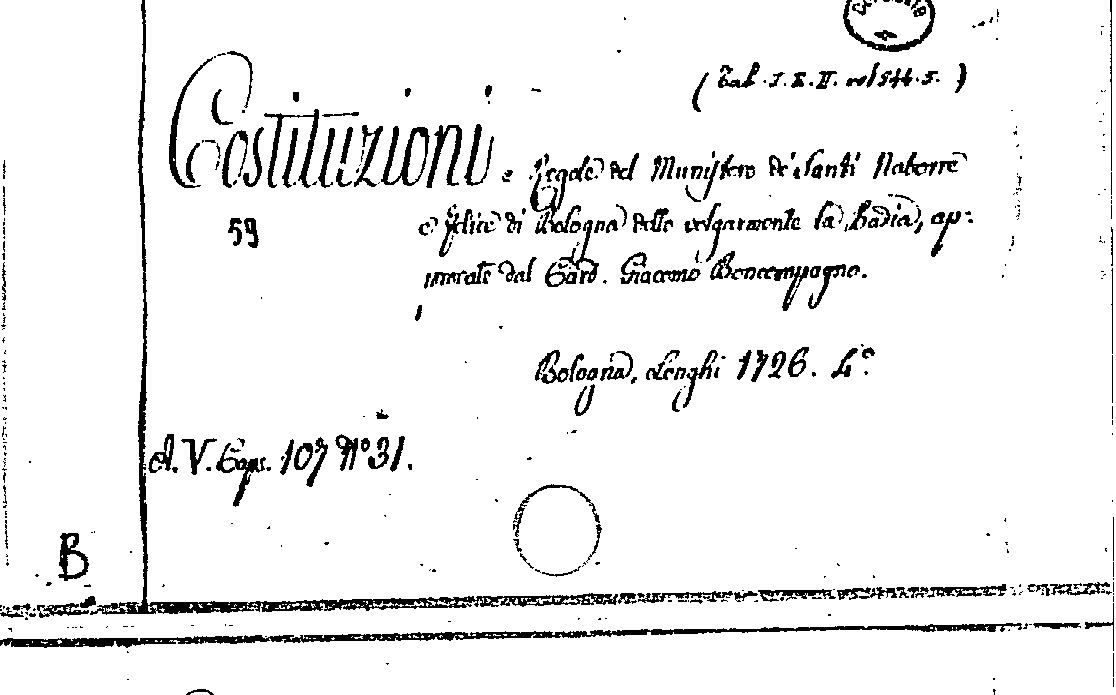 (Tab. I. K. II. vol 544. 5. )
Costituzioni e Regole del Munistero de' Santi Naborre
59
e Felice di Bologna detto volgarmente la Badia, ap-
provate dal Card. Giacomo Boncompagno.
Bologna, Longhi 1726. 4.º
A. V. Caps. 107 Nº 31.
B